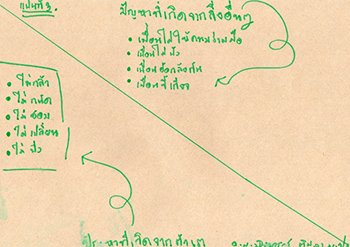 แผ่นที่ 3.
ปัญหาที่เกิดจากสิ่งอื่นๆ
• เพื่อนไม่ให้ความร่วมมือ
• เพื่อนไม่ฟัง
• เพื่อน
• เพื่อนขี้เกียจ
• ไม่กล้า
• ไม่ถนัด
• ไม่ชอบ
• ไม่เปลี่ยน
• ไม่ฟัง
ปัญหาที่เกิดจากตัวเอง